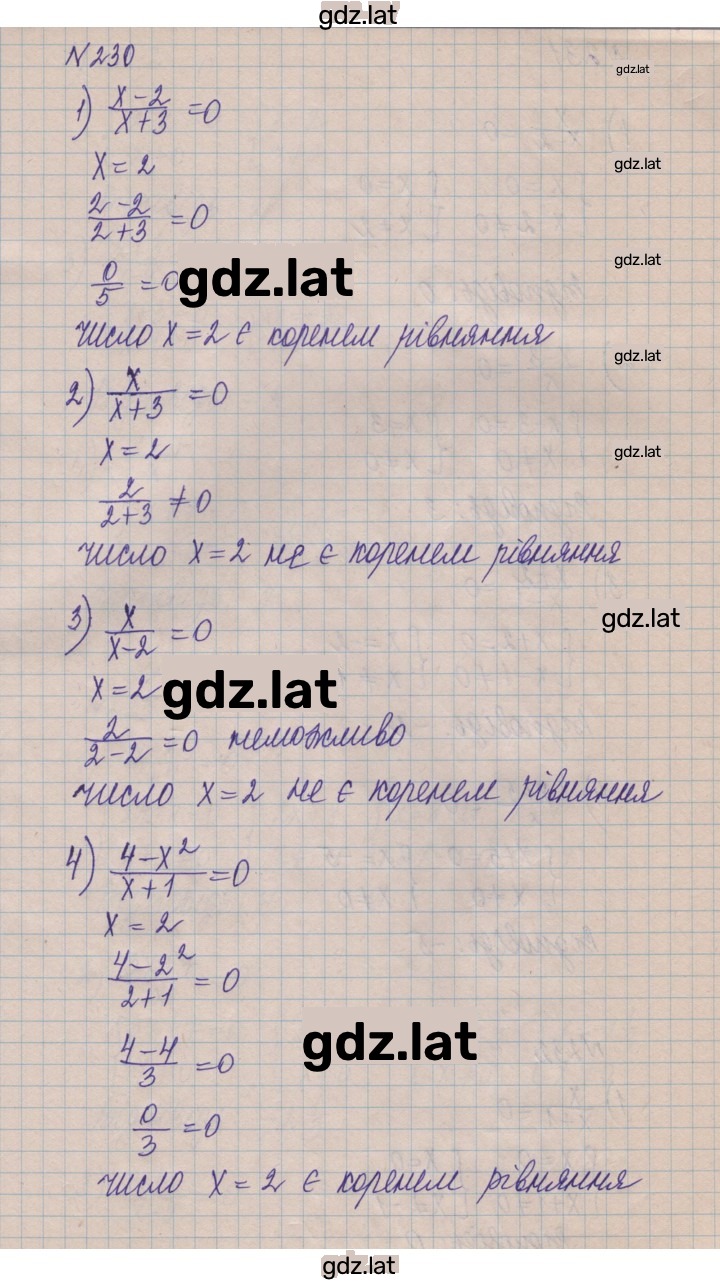 gdz.lat
N230
gdz.lat
1) (x-2)/(x+3) =0
x=2
gdz.lat
(2-2)/(2+3) =0
gdz.lat
0/5 =0
gdz.lat
число x=2 є коренем рівняння
gdz.lat
2) x/(x+3) =0
x=2
gdz.lat
2/(2+3) ≠0
число x=2 не є коренем рівняння
3) x/(x-2) =0
gdz.lat
x=2
gdz.lat
2/(2-2) =0 неможливо
число x=2 не є коренем рівняння
4) (4-x²)/(x+1) =0
x=2
(4-2²)/(2+1) =0
gdz.lat
(4-4)/3 =0
0/3 =0
число x=2 є коренем рівняння
gdz.lat